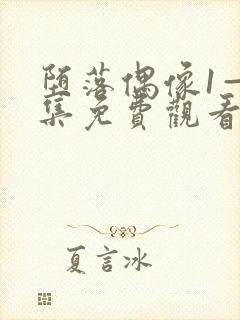 堕落偶像1—
集免費觀看
夏言冰